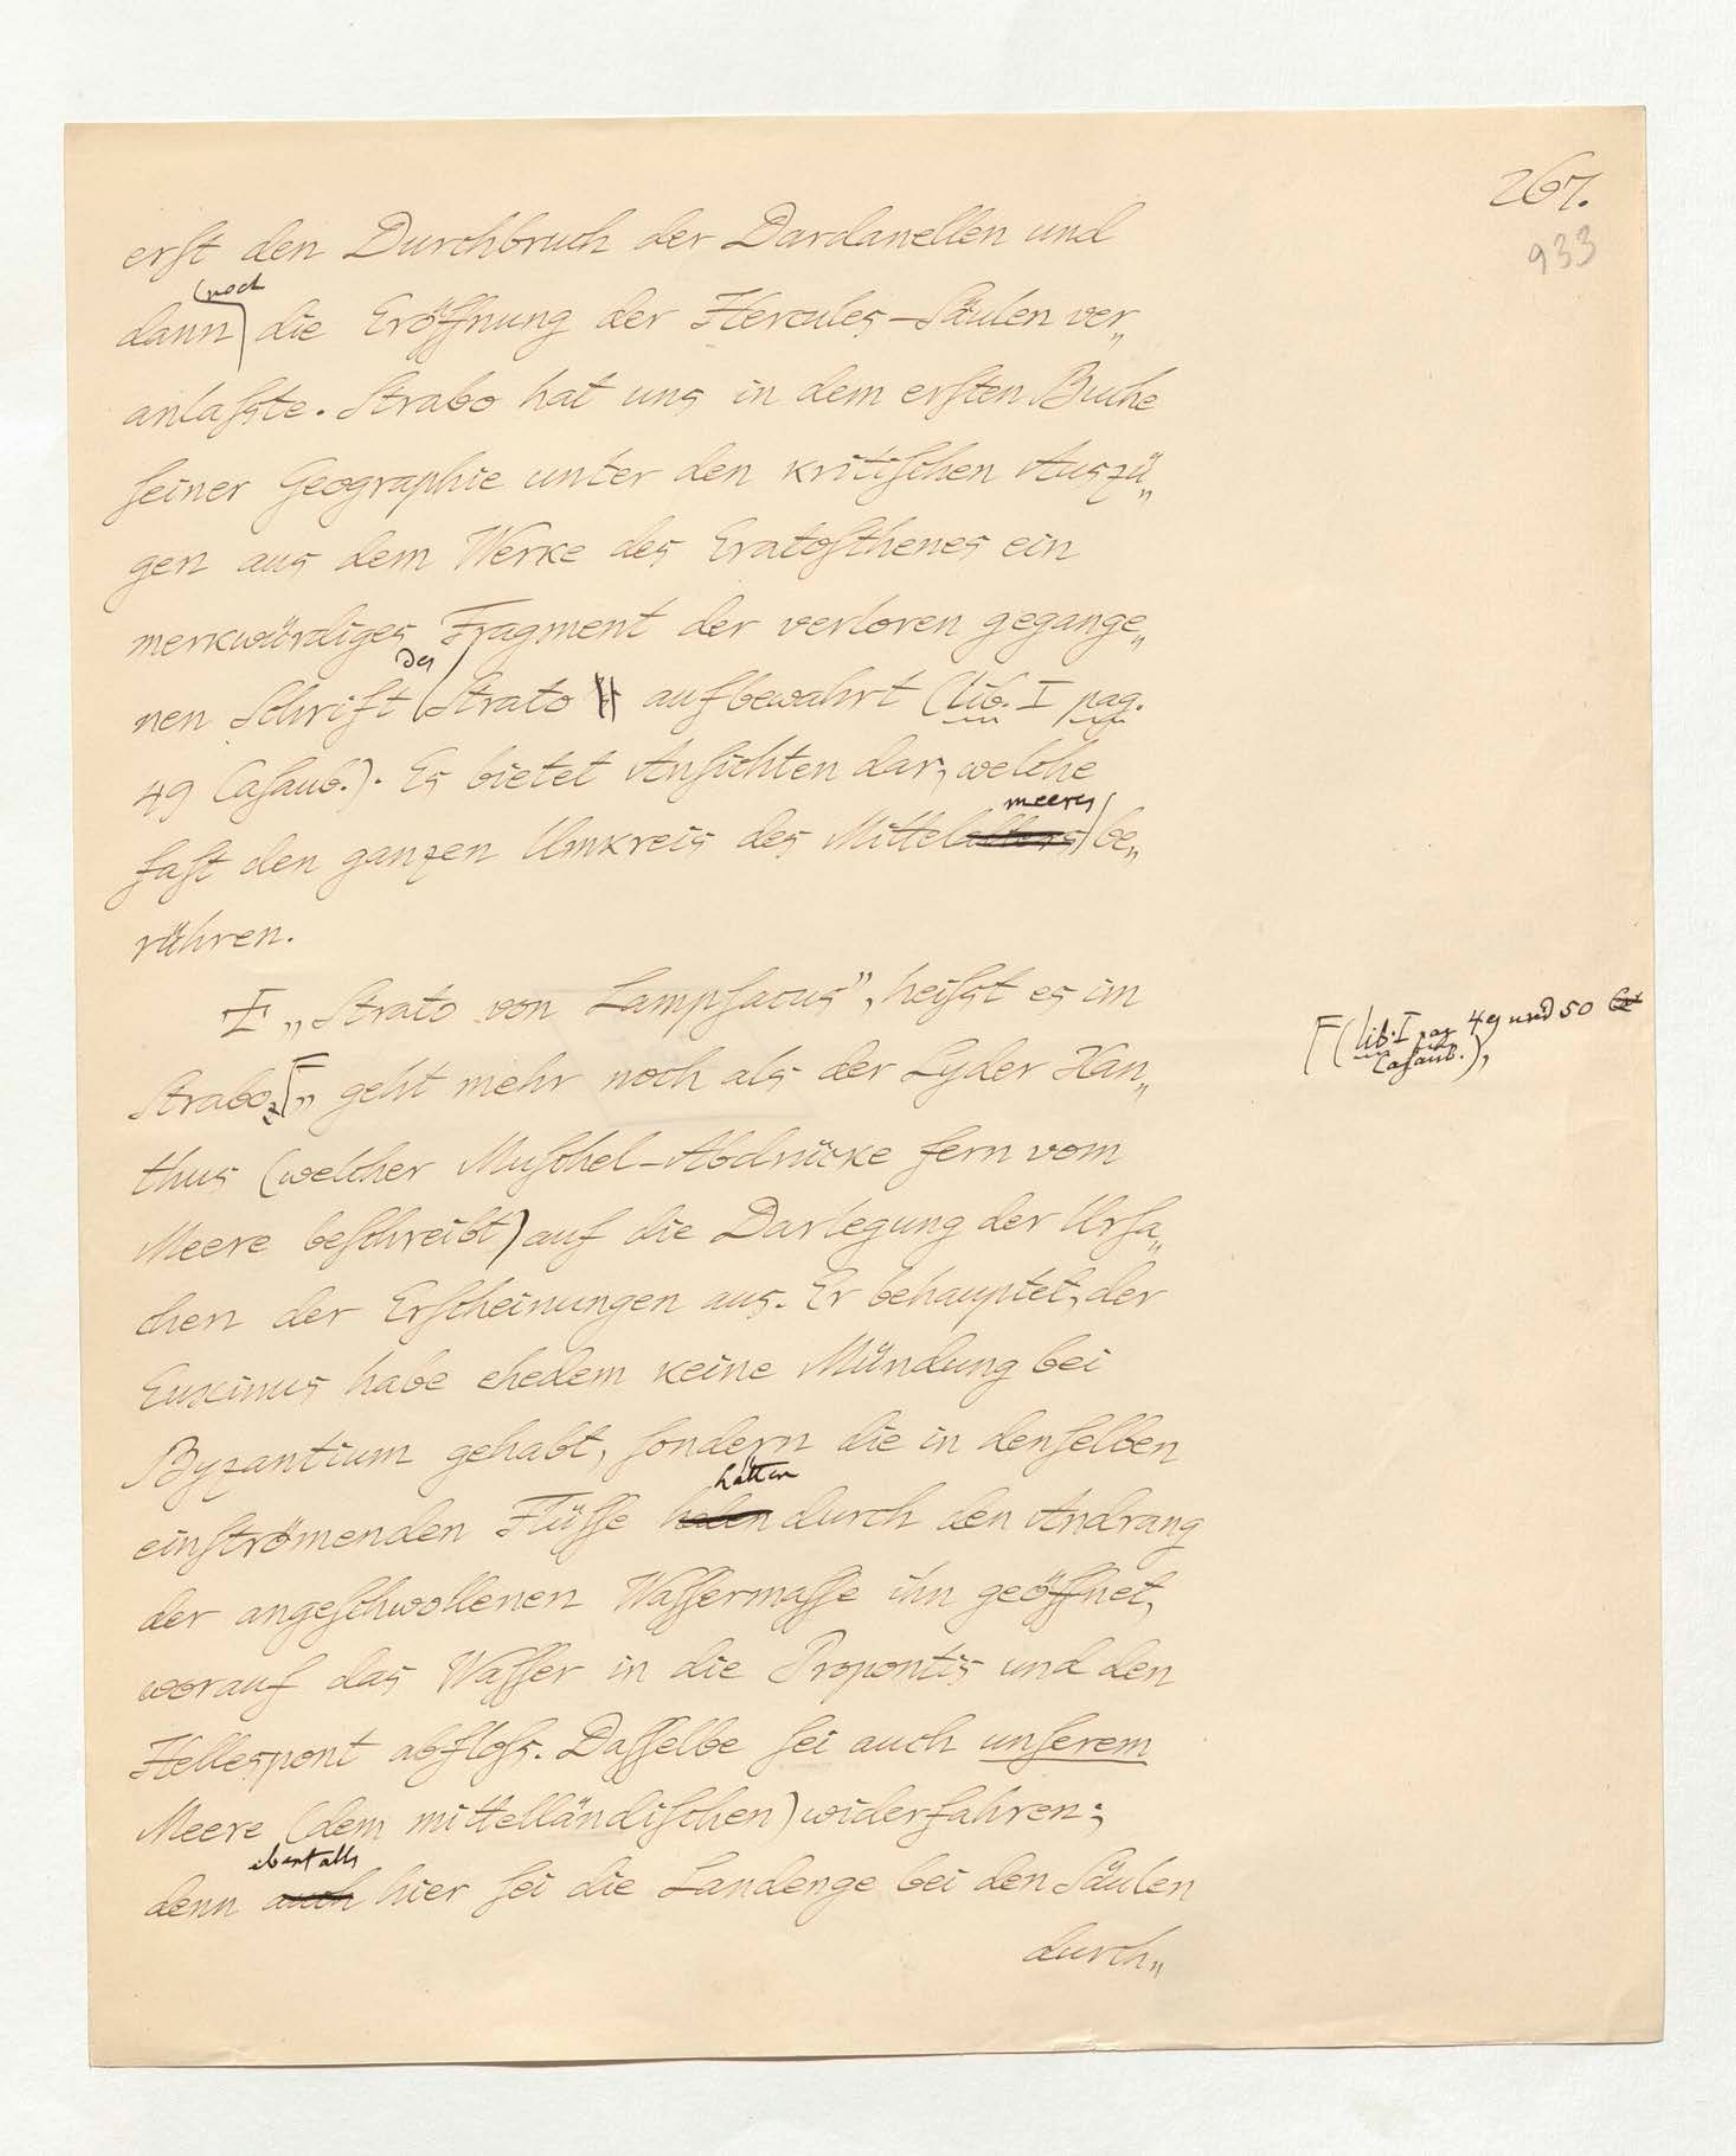 267.
933
erſt den Durchbruch der Dardanellen und
noch
dann die Eröffnung der Hercules-Säulen ver„
anlaſste. Strabo hat uns in dem erſten Buche
ſeiner Geographie unter den kritiſchen Auszü„
gen aus dem Werke des Eratoſthenes ein
merkwürdiges Fragment der verloren gegange„
des
nen Schrift Strato aufbewahrt (lib. I pag.
49 Caſaub.). Es bietet Anſichten dar, welche
meeres
faſt den ganzen Umkreis des Mittel be„
rühren.
„Strato von Lampſacus", heiſst es im
Strabo, „ geht mehr noch als der Lyder Xan„
F (lib. I pag 49 und 50
Caſaub.),
thus (welcher Muſchel-Abdrücke fern vom
Meere beſchreibt) auf die Darlegung der Urſa„
chen der Erſcheinungen aus. Er behauptet, der
Euxinus habe ehedem keine Mündung bei
Byzantium gehabt, ſondern die in denſelben
hätten
einſtrömenden Flüſſe haben durch den Andrang
der angeſchwollenen Waſſermaſſe ihn geöffnet,
worauf das Waſſer in die Propontis und den
Hellespont abfloſs. Daſſelbe ſei auch unſerem
Meere (dem mittelländiſchen) widerfahren;
ebenfalls
denn auch hier ſei die Landenge bei den Säulen
durch„